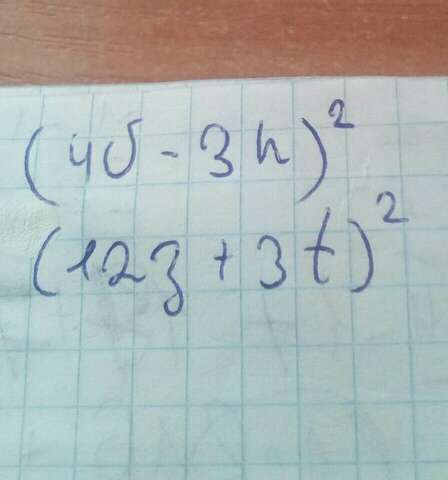 (4б - 3h)²
(12z + 3t)²